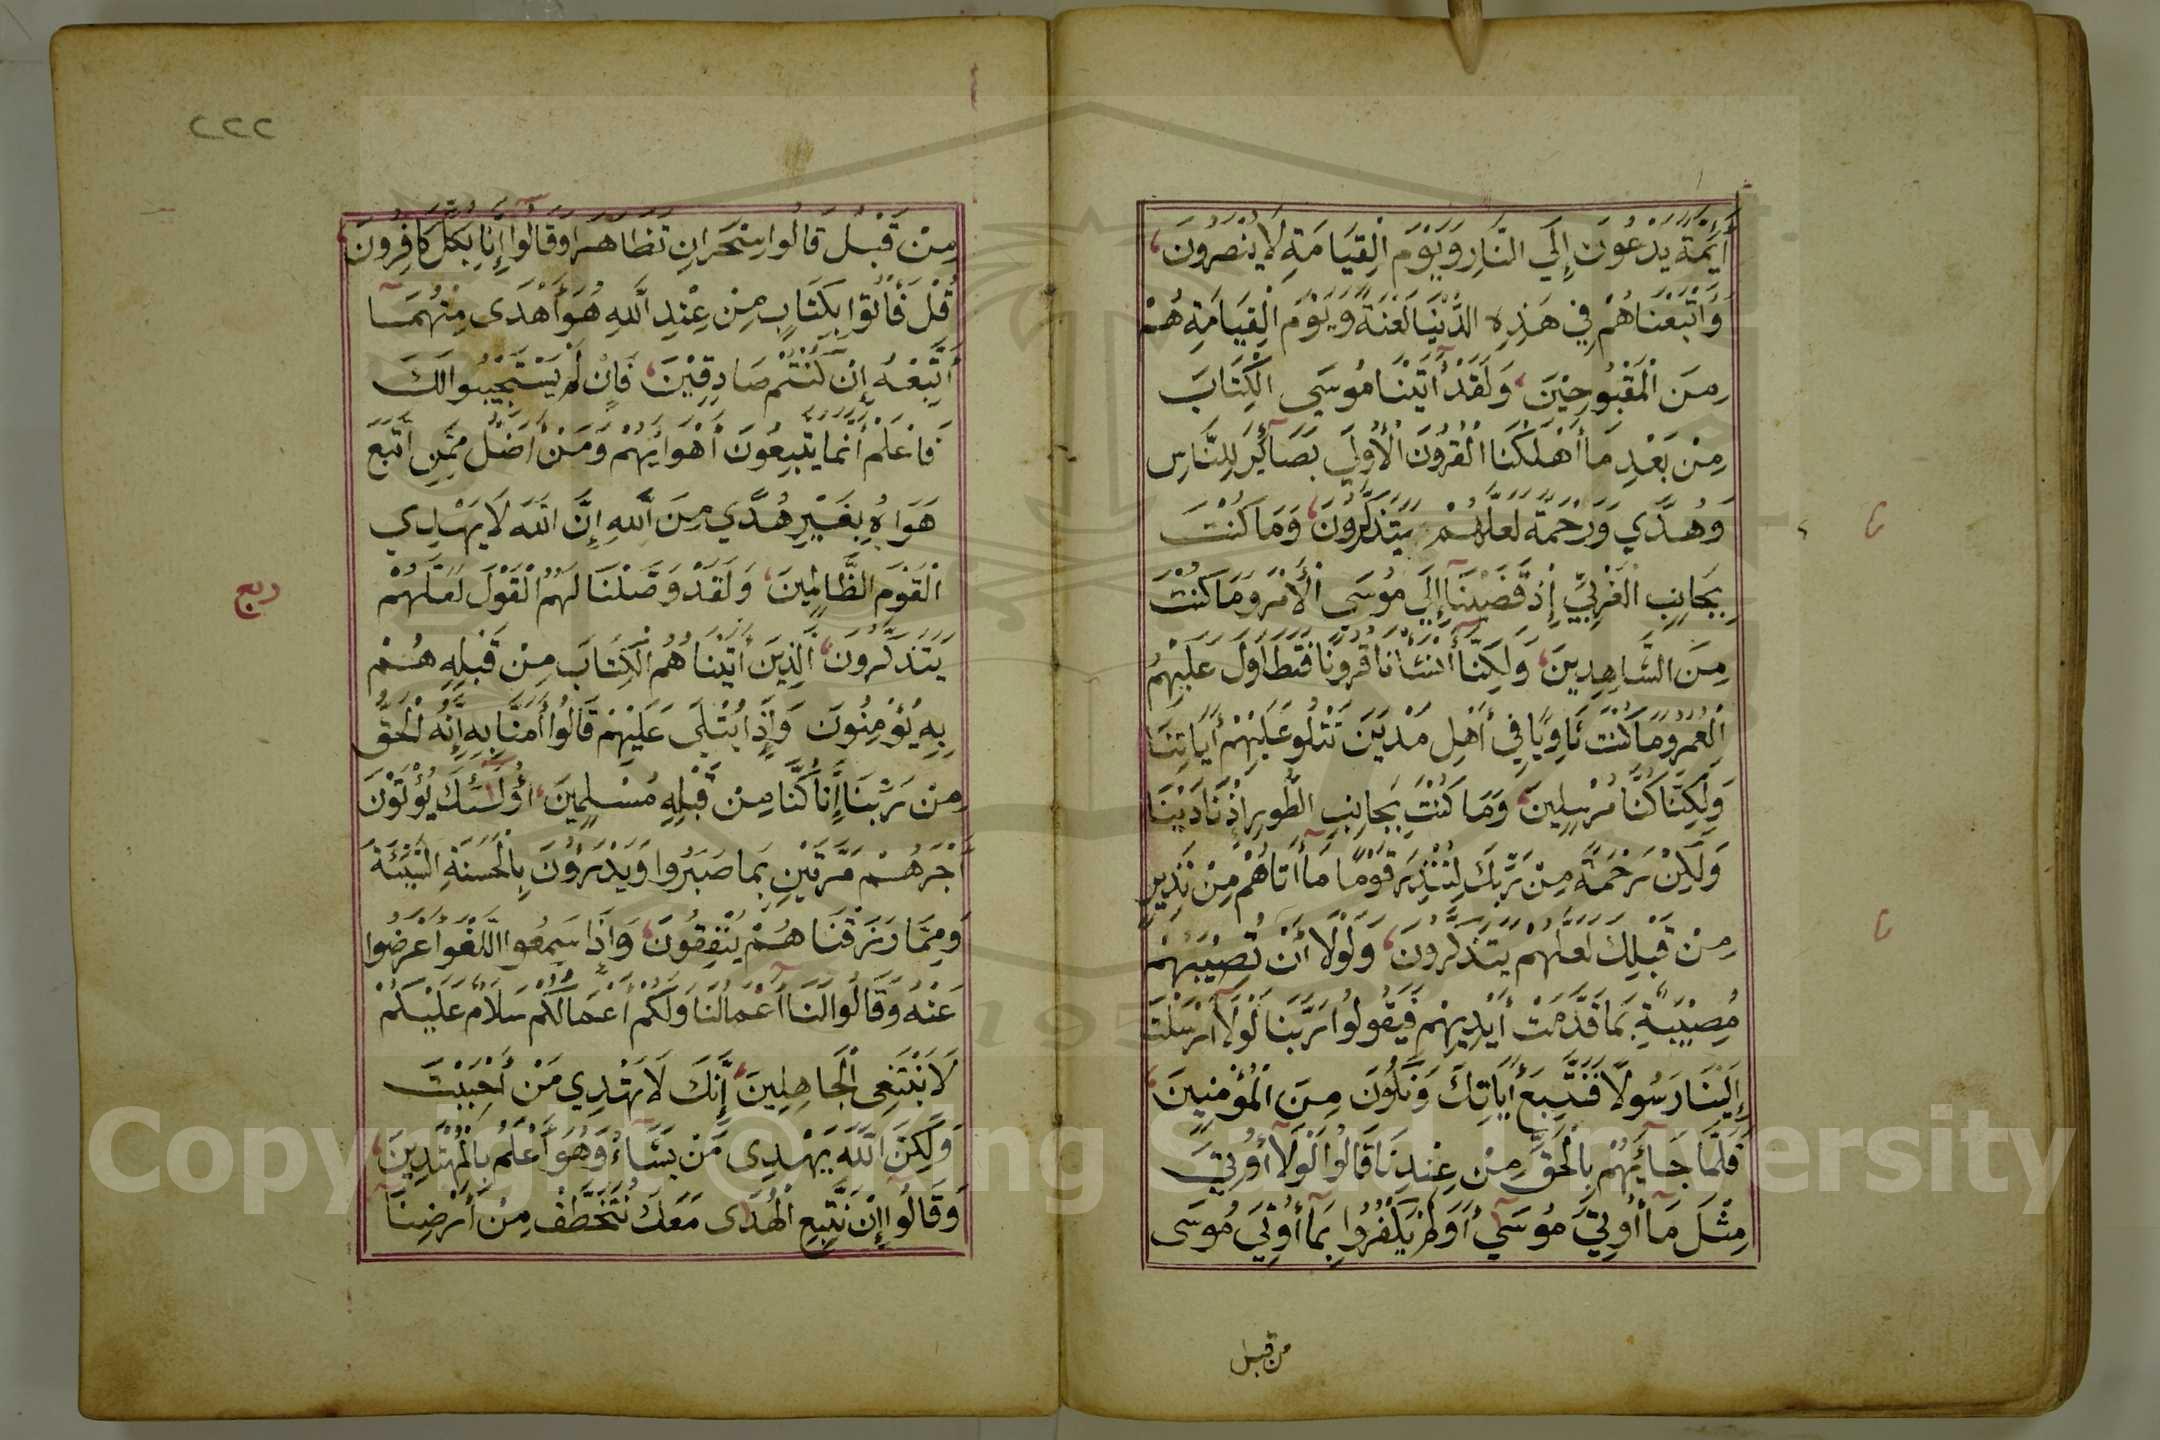 أَيِمَّةً يَدْعُونَ إِلَي النَّارِ وَيَوْمَ الْقِيَامَةِ لَا يُنْصَرُونَ
وَأَتْبَعْنَاهُمْ فِي هَذِهِ الدُّنْيَا لَعْنَةً وَيَوْمَ الْقِيَامَةِ هُمْ
مِنَ الْمَقْبُوحِيْنَ وَلَقَدْ أَتَيْنَا مُوسَي الْكِتَابَ
مِنْ بَعْدِ مَا أَهْلَكْنَا الْقُرُونَ الْأُولَي بَصَآئِرَ لِلنَّاسِ
وَهُدًي وَرَحْمَةً لَعَلَّهُمْ يَتَذَكَّرُونَ وَمَا كُنْتَ
بِجَانِبِ الْغَرْبِيِّ إِذْ قَضَيْنَآ إِلَي مُوسَي الْأَمْرَ وَمَا كُنْتَ
مِنَ الشَّاهِدِينَ وَلَكِنَّآ أَنْشَأْنَا قُرُونًا فَتَطَاوَلَ عَلَيْهِمُ
الْعُمُرُ وَمَا كُنْتَ ثَاوِيًا فِي أَهْلِ مَدْيَنَ تَتْلُو عَلَيْهِمْ أَيَاتِنَا
وَلَكِنَّا كُنَّا مُرْسِلِينَ وَمَا كُنْتَ بِجَانِبِ الطُّورِ إِذْ نَادَيْنَا
وَلَكِنْ رَحْمَةً مِنْ رَبِّكَ لِتُنْذِرَ قَوْمًا مَآ أَتَاهُمْ مِنْ نَذِيرٍ
مِنْ قَبْلِكَ لَعَلَّهُمْ يَتَذَكَّرُونَ وَلَوْلَا أَنْ تُصِيْبَهُمْ
مُصِيْبَةٌ بِمَا قَدَّمَتْ أَيْدِيهِمْ فَيَقُولُوا رَبَّنَا لَوْلَآ أَرْسَلْتَ
إِلَيْنَا رَسُولًا فَنَتَّبِعَ أَيَاتِكَ وَنَكُونَ مِنَ الْمُؤْمِنِينَ
فَلَمَّا جَآئَهُمْ بِالْحَقِّ مِنْ عِنْدِنَا قَالُوا لَوْلَآ أُوتِيَ
مِثْلَ مَآ أُوتِيَ مُوسَي أَوَلَمْ يَكْفُرُوا بِمَآ أُوتِيَ مُوسَى
من قبل
٢٢٢
مِنْ قَبْلُ قَالُوا سِحْرَانِ تَظَاهَرَا وَقَالُوا إِنَّا بِكُلٍّ كَافِرُونَ
قُلْ فَأْتُوا بِكِتَابٍ مِنْ عِنْدِ اللَّهِ هُوَ أَهْدَى مِنْهُمَآ
أَتَّبِعْهُ إِنْ كُنْتُمْ صَادِقِيْنَ فَإِنْ لَمْ يَسْتَجِيْبُوا لَكَ
فَاعْلَمْ أَنَّمَا يَتَّبِعُونَ أَهْوَائَهُمْ وَمَنْ أَضَلُّ مِمَّنِ اتَّبَعَ
هَوَاهُ بِغَيْرِ هُدًي مِنَ اللَّهِ إِنَّ اللَّهَ لَا يَهْدِي
الْقَوْمَ الظَّالِمِينَ وَلَقَدْ وَصَّلْنَا لَهُمُ الْقَوْلَ لَعَلَّهُمْ
ربع
يَتَذَكَّرُونَ الَّذِينَ أَتَيْنَاهُمُ الْكِتَابَ مِنْ قَبْلِهِ هُمْ
بِهِ يُؤْمِنُونَ وَإِذَا يُتْلَى عَلَيْهِمْ قَالُوا أَمَنَّا بِهِ إِنَّهُ الْحَقُّ
مِنْ رَبِّنَا إِنَّا كُنَّا مِنْ قَبْلِهِ مُسْلِمِينَ أُولَئِكَ يُؤْتَوْنَ
أَجْرَهُمْ مَرَّتَيْنِ بِمَا صَبَرُوا وَيَدْرَؤُنَ بِالْحَسَنَةِ السَّيِّئَةَ
وَمِمَّا رَزَقْنَاهُمْ يُنْفِقُونَ وَإِذَا سَمِعُوا اللَّغْوَ أَعْرَضُوا
عَنْهُ وَقَالُوا لَنَآ أَعْمَالُنَا وَلَكُمْ أَعْمَالُكُمْ سَلَامٌ عَلَيْكُمْ
لَا نَبْتَغِى الْجَاهِلِينَ إِنَّكَ لَا تَهْدِي مَنْ أَحْبَبْتَ
وَلَكِنَّ اللَّهَ يَهْدِى مَنْ يَشَآءُ وَهُوَ أَعْلَمُ بِالْمُهْتَدِينَ
وَقَالُوآ إِنْ نَتَّبِعِ الْهُدَى مَعَكَ نُتَخَطَّفْ مِنْ أَرْضِنَآ
Copyright © King Saud University